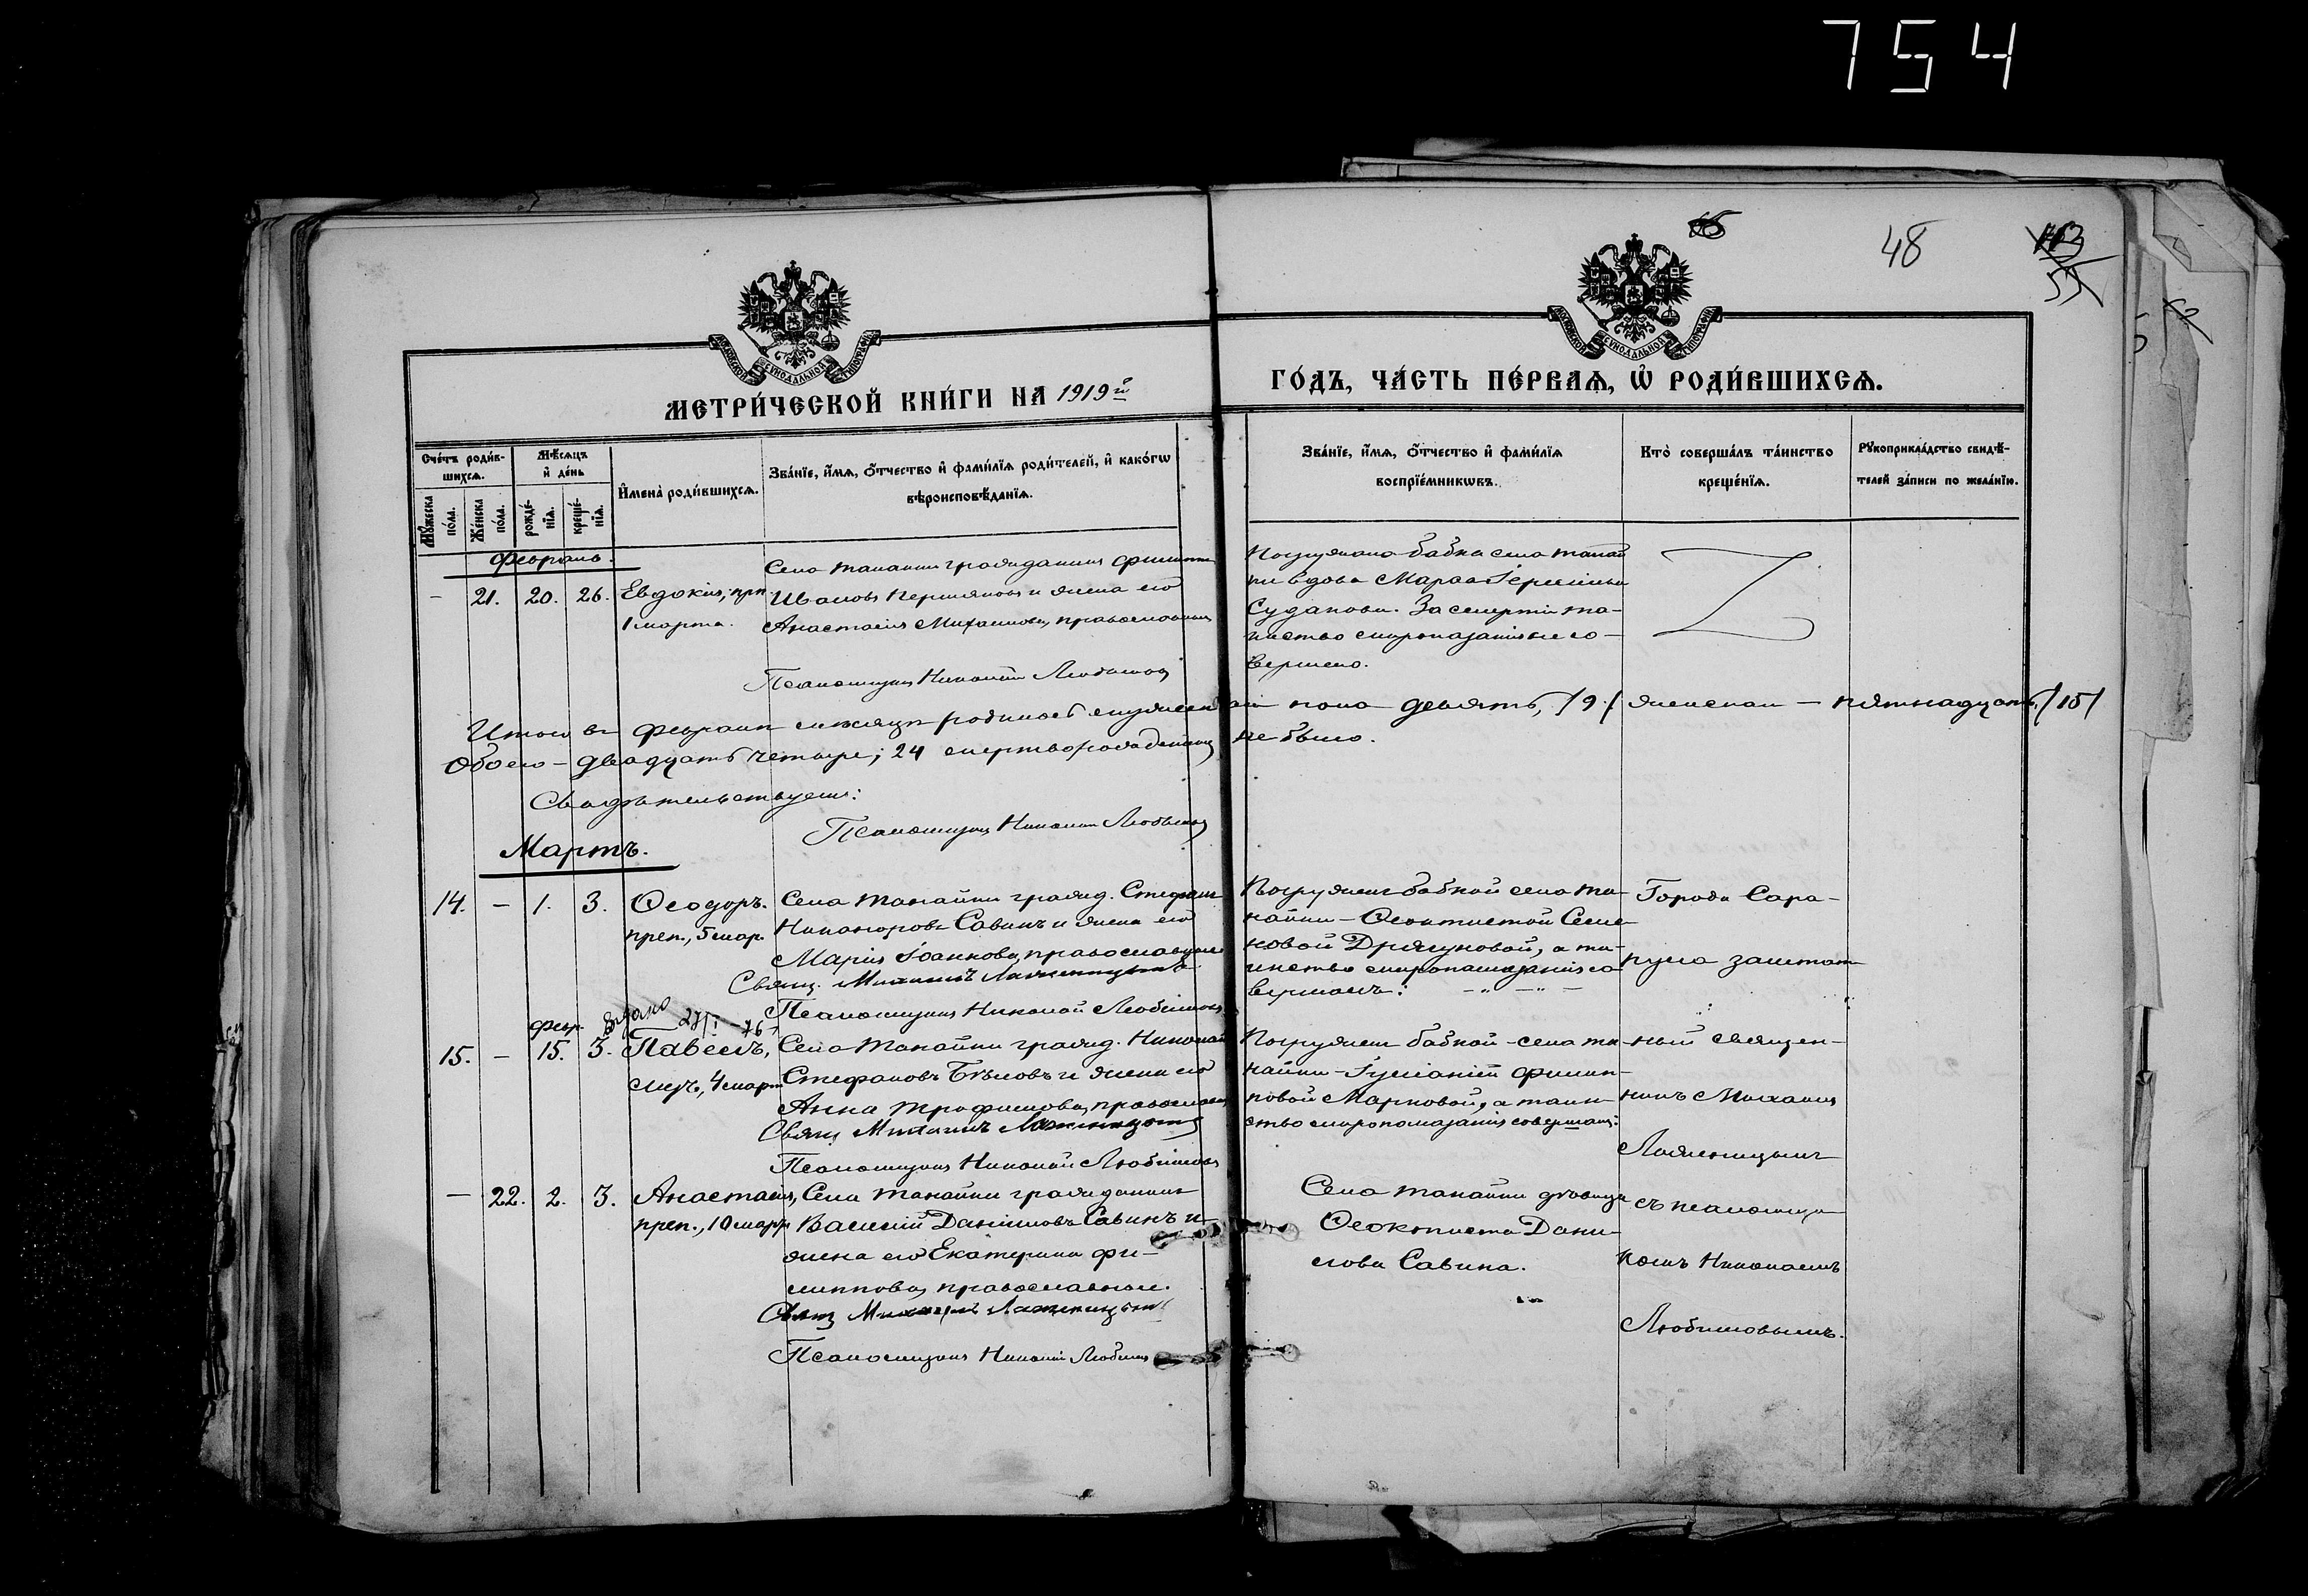 754
48
55
МОСКОВСКОЙ СѴНОДАЛЬНОЙ ТИПОГРАФІИ
МОСКОВСКОЙ СѴНОДАЛЬНОЙ ТИПОГРАФІИ
МЕТРИ́ЧЕСКОЙ КНИ́ГИ НА 1919й
ГО́ДЪ, ЧА́СТЬ ПЕ́РВАѦ, Ѽ РОДИ́ВШИХСѦ.
Сче́тъ роди́в-
шихсѧ.
Мѣ́сѧцъ
и҆ де́нь
Мꙋ́жеска
по́ла.
Же́нска
по́ла.
рожде́-
нїѧ.
креще́-
нїѧ.
И҆мена̀ роди́вшихсѧ.
Зва́нїе, и҆́мѧ, ѻ҆́тчество и҆ фами́лїѧ роди́телей, и҆ како́гѡ
вѣроисповѣ́данїѧ.
Зва́нїе, и҆́мѧ, ѻ҆́тчество и҆ фами́лїѧ
воспрїе́мникѡвъ.
Кто̀ соверша́лъ та́инство
креще́нїѧ.
Рꙋкоприкла́дство свидѣ́-
телей за́писи по жела́нїю.
Февраль.
- 21. 20. 26. Евдокія, прп.
1 марта.
Села Танайки гражданинъ Филиппъ
Ивановъ Пермяковъ и жена его
Анастасія Михаилова, православные
Псаломщикъ Николай Любимовъ
Погружена бабка села Танай
ки вдова
Суданова. За смертію та-
инство миропомазанія не со-
вершено.
Итого въ февралѣ мѣсяцѣ родилось мужескаго пола девять, /9/ женскаго — пятнадцать, /15/
Обоего - двадцать четыре; 24 мертворожденныхъ не было.
Свидѣтельствуемъ:
Псаломщикъ Николай Любимовъ
Мартъ.
14. - 1. 3. Ѳеодоръ.
преп., 5 мар.
Села Танайки гражд. Стефанъ
Никаноровъ Савинъ и жена его
Марія Іоаннова, православные
Свящ. Михаилъ Ляженицынъ
Псаломщикъ Николай Любимовъ
Погруженъ бабкой села Та-
найки - Ѳеоктистой Семе
новой Дрягуновой, а та-
инство миропомазанія со
вершалъ: -"-"-
Города Сара-
пула заштат
Выдано 27/I-76 г
февр.
15. - 15. 3. Павелъ,
муч., 4 март
Села Танайки гражд. Николай
Стефановъ Бѣловъ и жена его
Анна Трофимова, православные
Свящ Михаилъ Ляженицынъ
Псаломщикъ Николай Любимовъ
Погруженъ бабкой - села Та
найки - Іуліаніей Филип-
повой Марковой, а таин-
ство миропомазанія совершалъ:
-ный священ-
никъ Михаилъ
Ляженицынъ
- 22. 2. 3. Анастасія,
преп., 10 марта
Села Танайки гражданинъ
Василій Даниловъ Савинъ и
жена его Екатерина Фи-
липпова, православные.
Свящ Михаилъ Ляженицынъ
Псаломщикъ Николай Любимовъ
Села Танайки дѣвица
Ѳеоктиста Дани-
лова Савина.
съ псаломщи
комъ Николаемъ
Любимовымъ.